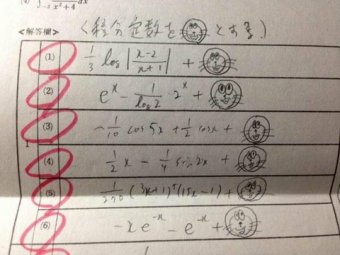 ∫ x²+4 dx
<解答欄> (積分定数を とする。)
(1) 1/3 log |x-2/x+1| +
(2) e^x - 1/log2 · 2^x +
(3) -1/10 cos 5x + 1/2 cos x +
(4) 1/2 x - 1/4 sin 2x +
(5) 1/270 (3x+1)^5 (15x-1) +
(6) -x e^-x - e^-x +